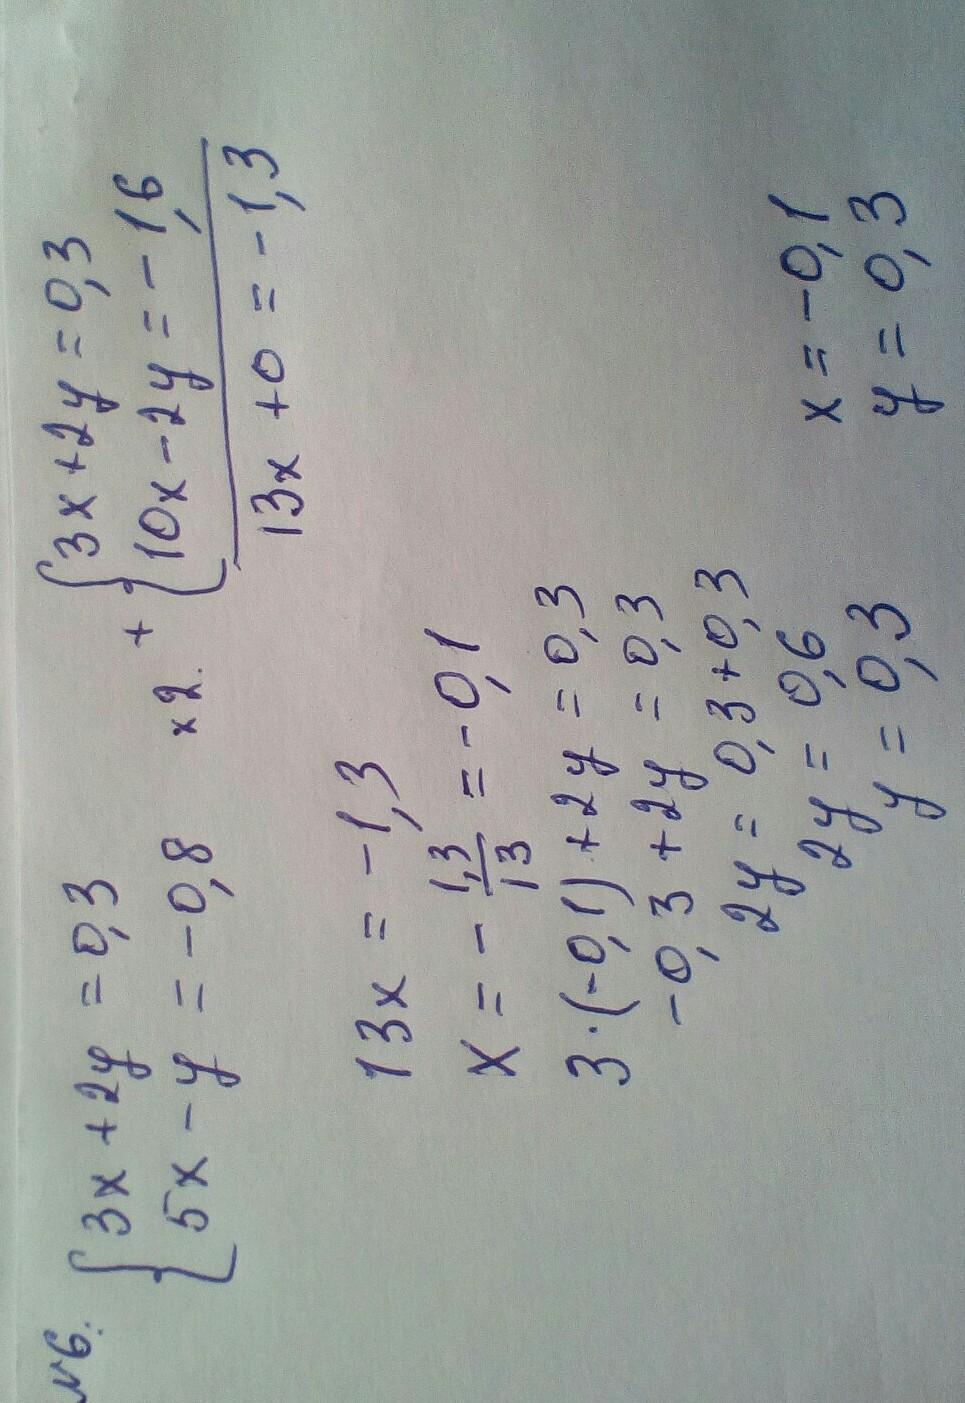 №6.
{3x + 2y = 0,3
{5x - y = -0,8 x2.
+ {3x + 2y = 0,3
{10x - 2y = -1,6
13x + 0 = -1,3
13x = -1,3
x = - 1,3/13 = -0,1
3·(-0,1) + 2y = 0,3
-0,3 + 2y = 0,3
2y = 0,3 + 0,3
2y = 0,6
y = 0,3
x = -0,1
y = 0,3